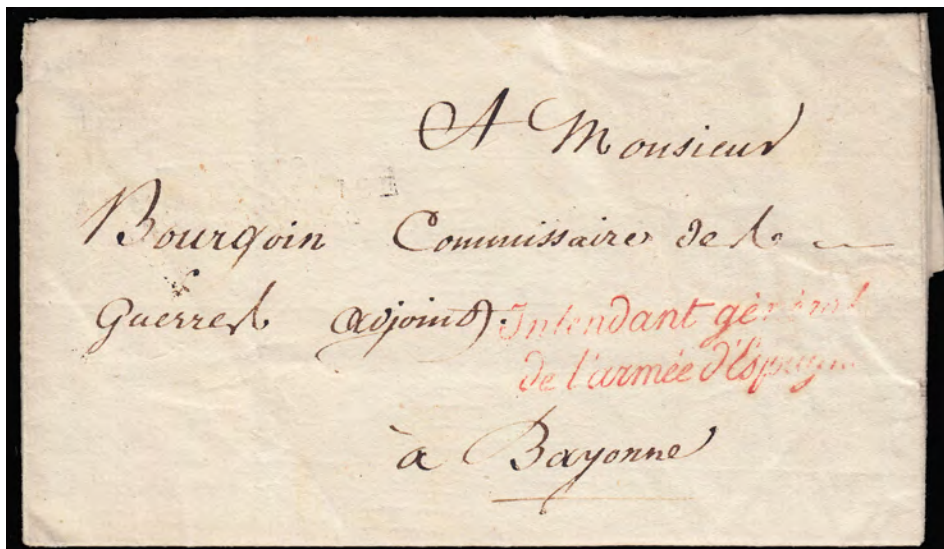 A Monsieur
Bourgoin Commissaire des
Guerres adjoint.
Intendant général
de l'armée d'Espagne
à Bayonne